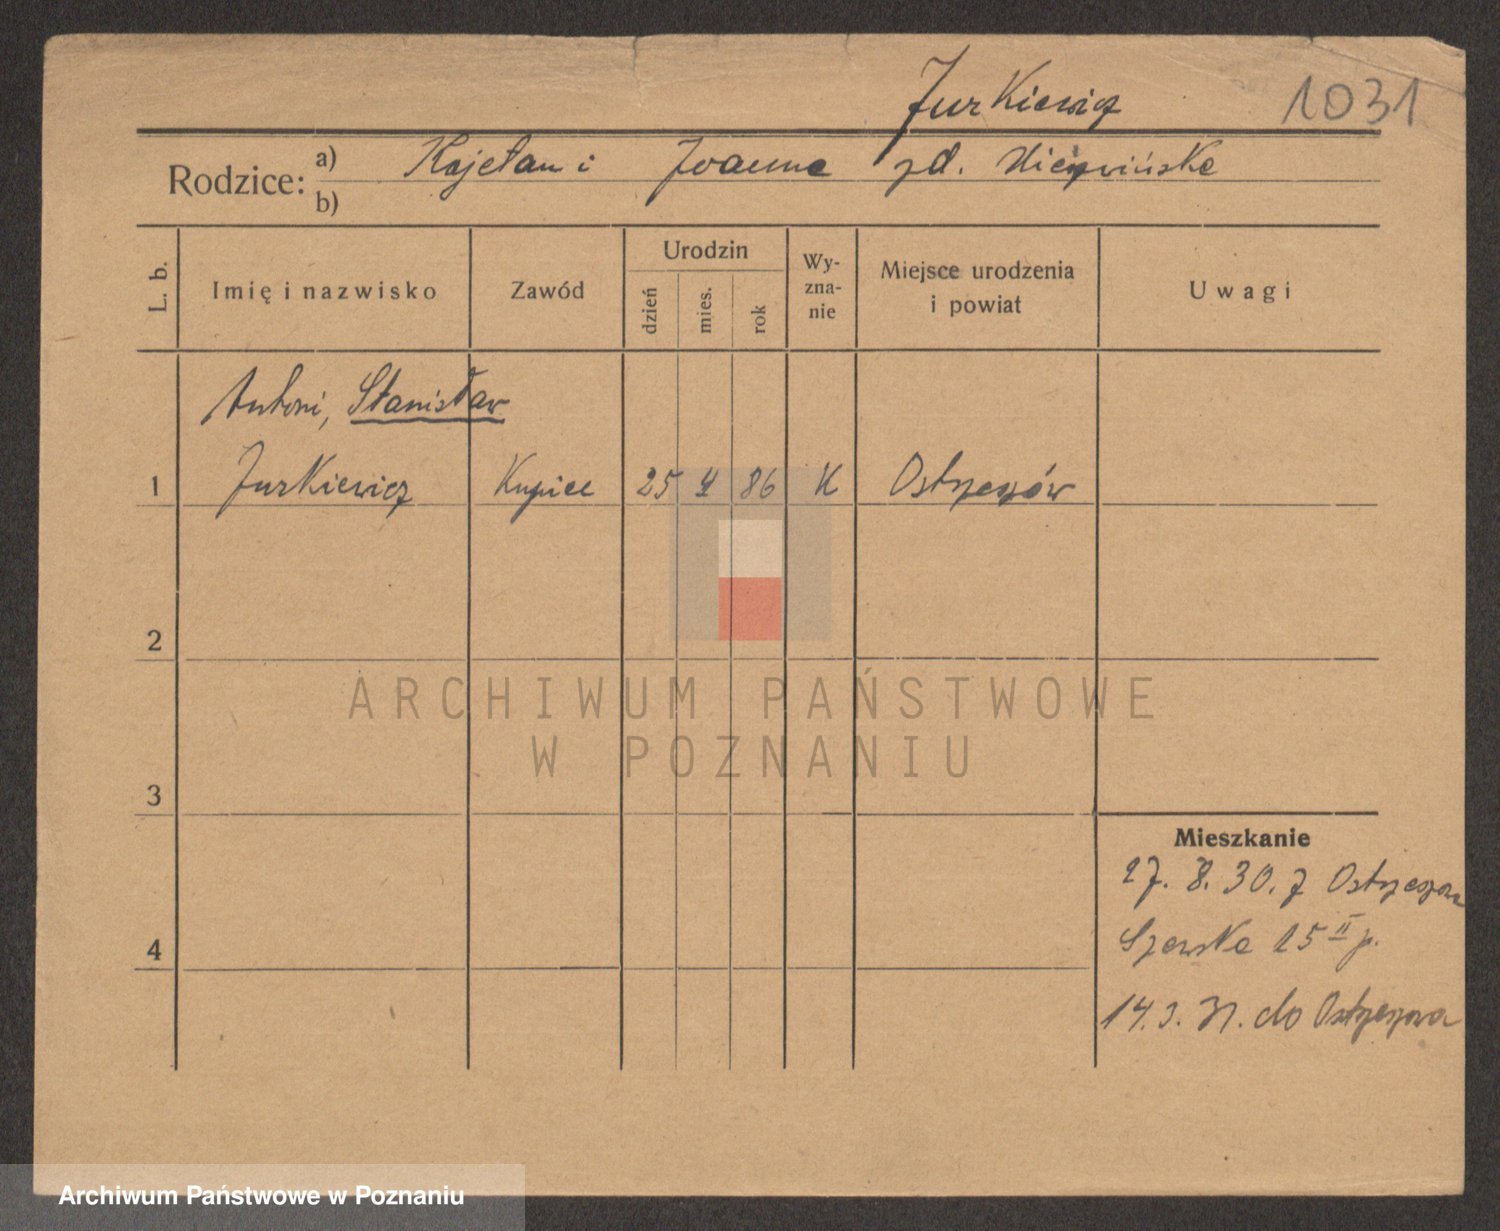 Jurkiewicz 1031
Rodzice: a) Kajetan i Joanna zd.
b)
L. b. Imię i nazwisko Zawód Urodzin dzień mies. rok Wy-zna-nie Miejsce urodzenia i powiat Uwagi
Antoni, Stanisław
1 Jurkiewicz Kupiec 25 4 86 K Ostrzeszów
2
ARCHIWUM PAŃSTWOWE
W POZNANIU
3
Mieszkanie
27. 8. 30. z Ostrzeszowa
Szewska 15 II p.
4
14. 3. 31. do Ostrzeszowa
Archiwum Państwowe w Poznaniu